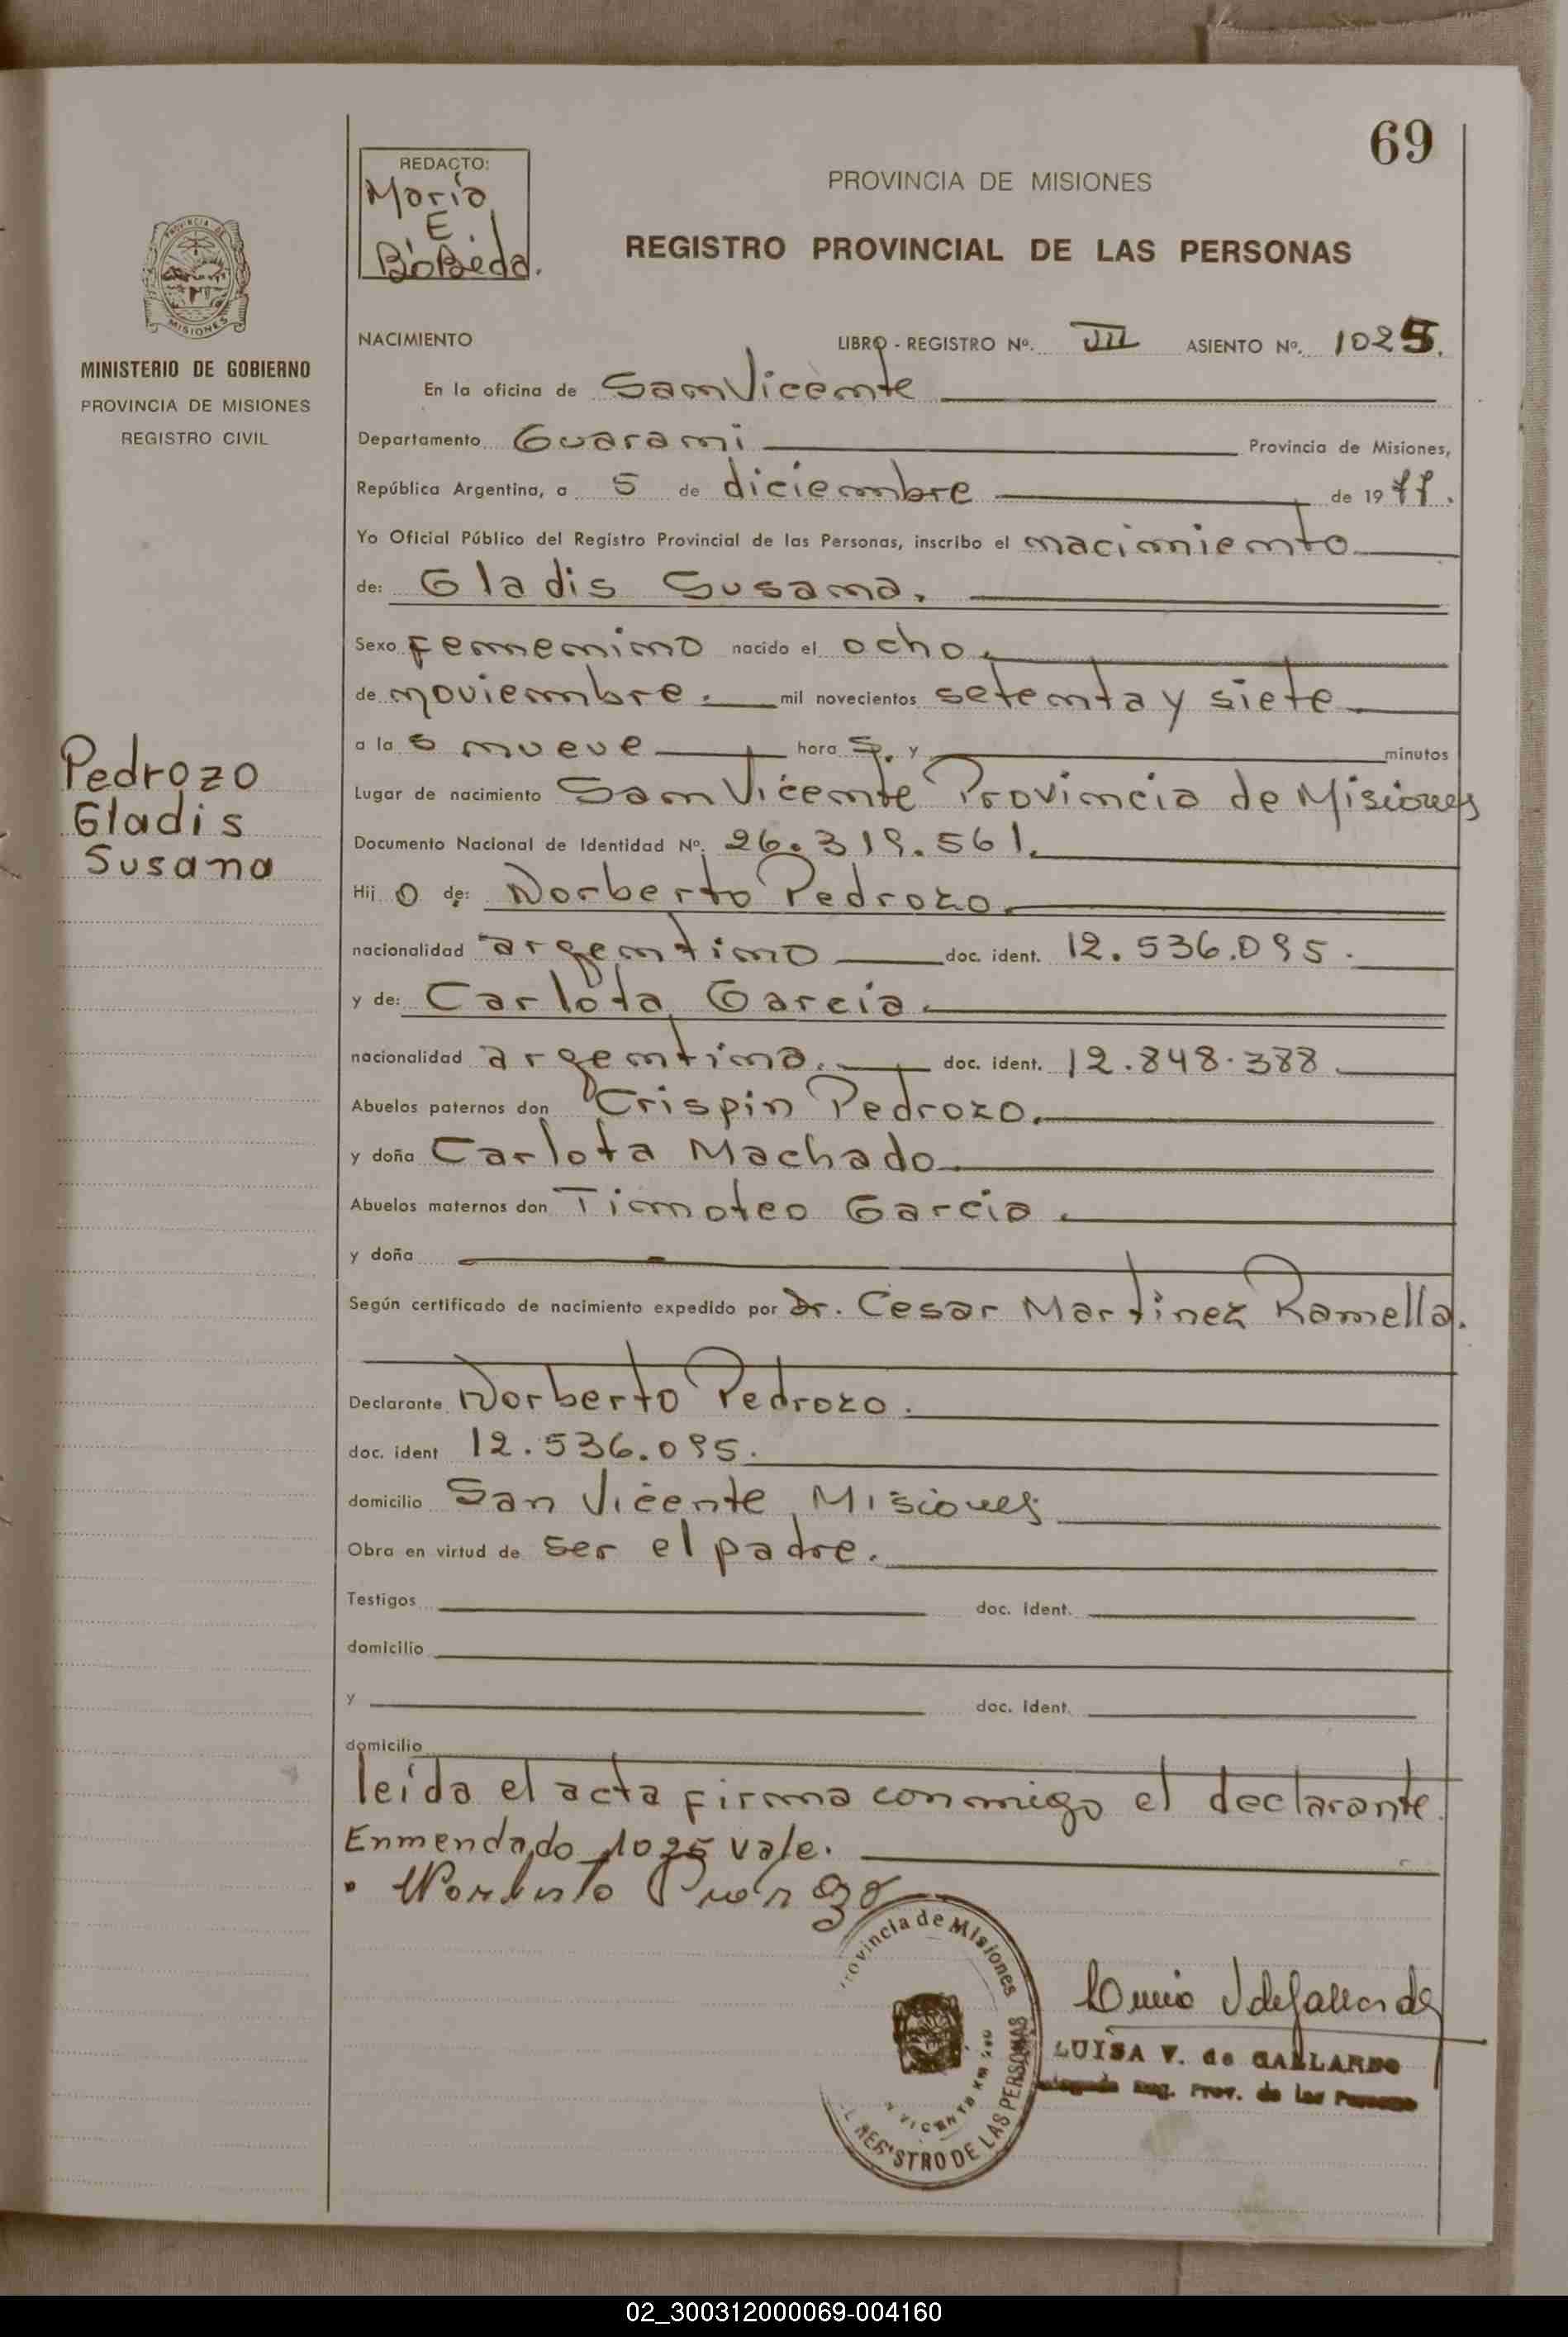 69
REDACTO:
María
E.
Bobeda.
PROVINCIA DE MISIONES
REGISTRO PROVINCIAL DE LAS PERSONAS
PROVINCIA DE
MISIONES
MINISTERIO DE GOBIERNO
PROVINCIA DE MISIONES
REGISTRO CIVIL
NACIMIENTO LIBRO - REGISTRO Nº. III ASIENTO Nº. 1025.
En la oficina de San Vicente
Departamento Guarani Provincia de Misiones,
República Argentina, a 5 de diciembre de 1977.
Yo Oficial Público del Registro Provincial de las Personas, inscribo el nacimiento
de: Gladis Susana.
Sexo femenino nacido el ocho.
de noviembre. mil novecientos setenta y siete
a la s nueve hora s. y minutos
Pedrozo
Gladis
Susana
Lugar de nacimiento San Vicente Provincia de Misiones
Documento Nacional de Identidad Nº. 26.319.561.
Hij o de: Norberto Pedrozo.
nacionalidad argentino doc. ident. 12.536.095.
y de: Carlota Garcia.
nacionalidad argentina. doc. ident. 12.848.388.
Abuelos paternos don Crispin Pedrozo.
y doña Carlota Machado.
Abuelos maternos don Timoteo Garcia.
y doña
Según certificado de nacimiento expedido por Dr. Cesar Martinez Ramella.
Declarante Norberto Pedrozo.
doc. ident 12.536.095.
domicilio San Vicente, Misiones
Obra en virtud de ser el padre.
Testigos doc. ident.
domicilio
y doc. ident.
domicilio
leída el acta firma conmigo el declarante.
Enmendado 1025 vale.
Norberto
Provincia de Misiones
REGISTRO DE LAS PERSONAS
LUISA V. de GALLARDO
Reg. Prov. de las Personas
02_300312000069-004160